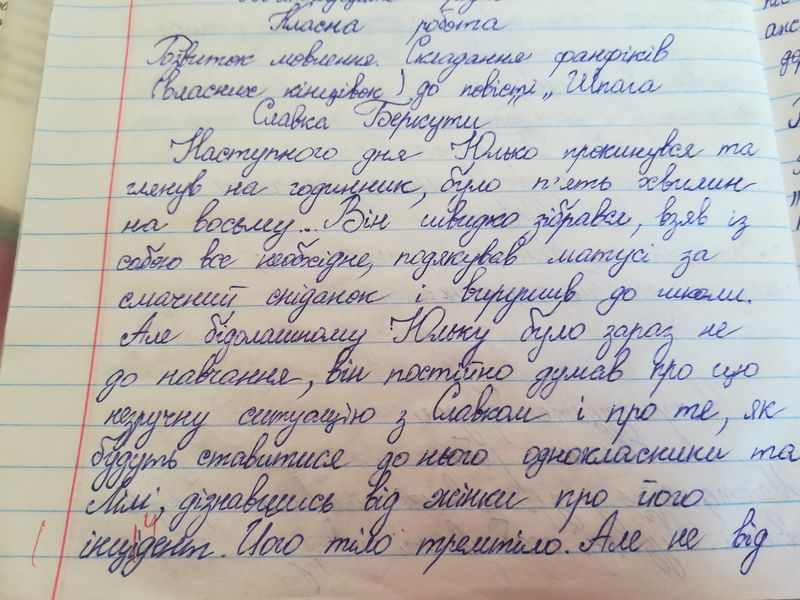 Класна робота
Розвиток мовлення. Складання фанфіків
(власних кінцівок) до повісті „Шпага
Славка Беркути
Наступного дня Юлько прокинувся та
глянув на годинник, було п'ять хвилин
на восьму... Він швидко зібрався, взяв із
собою все необхідне, подякував матусі за
смачний сніданок і вирушив до школи.
Але бідолашному Юльку було зараз не
до навчання, він постійно думав про цю
незручну ситуацію з Славком і про те, як
будуть ставитися до нього однокласники та
Лілі, дізнавшись від жінки про його
інцідент. Його тіло тремтіло. Але не від